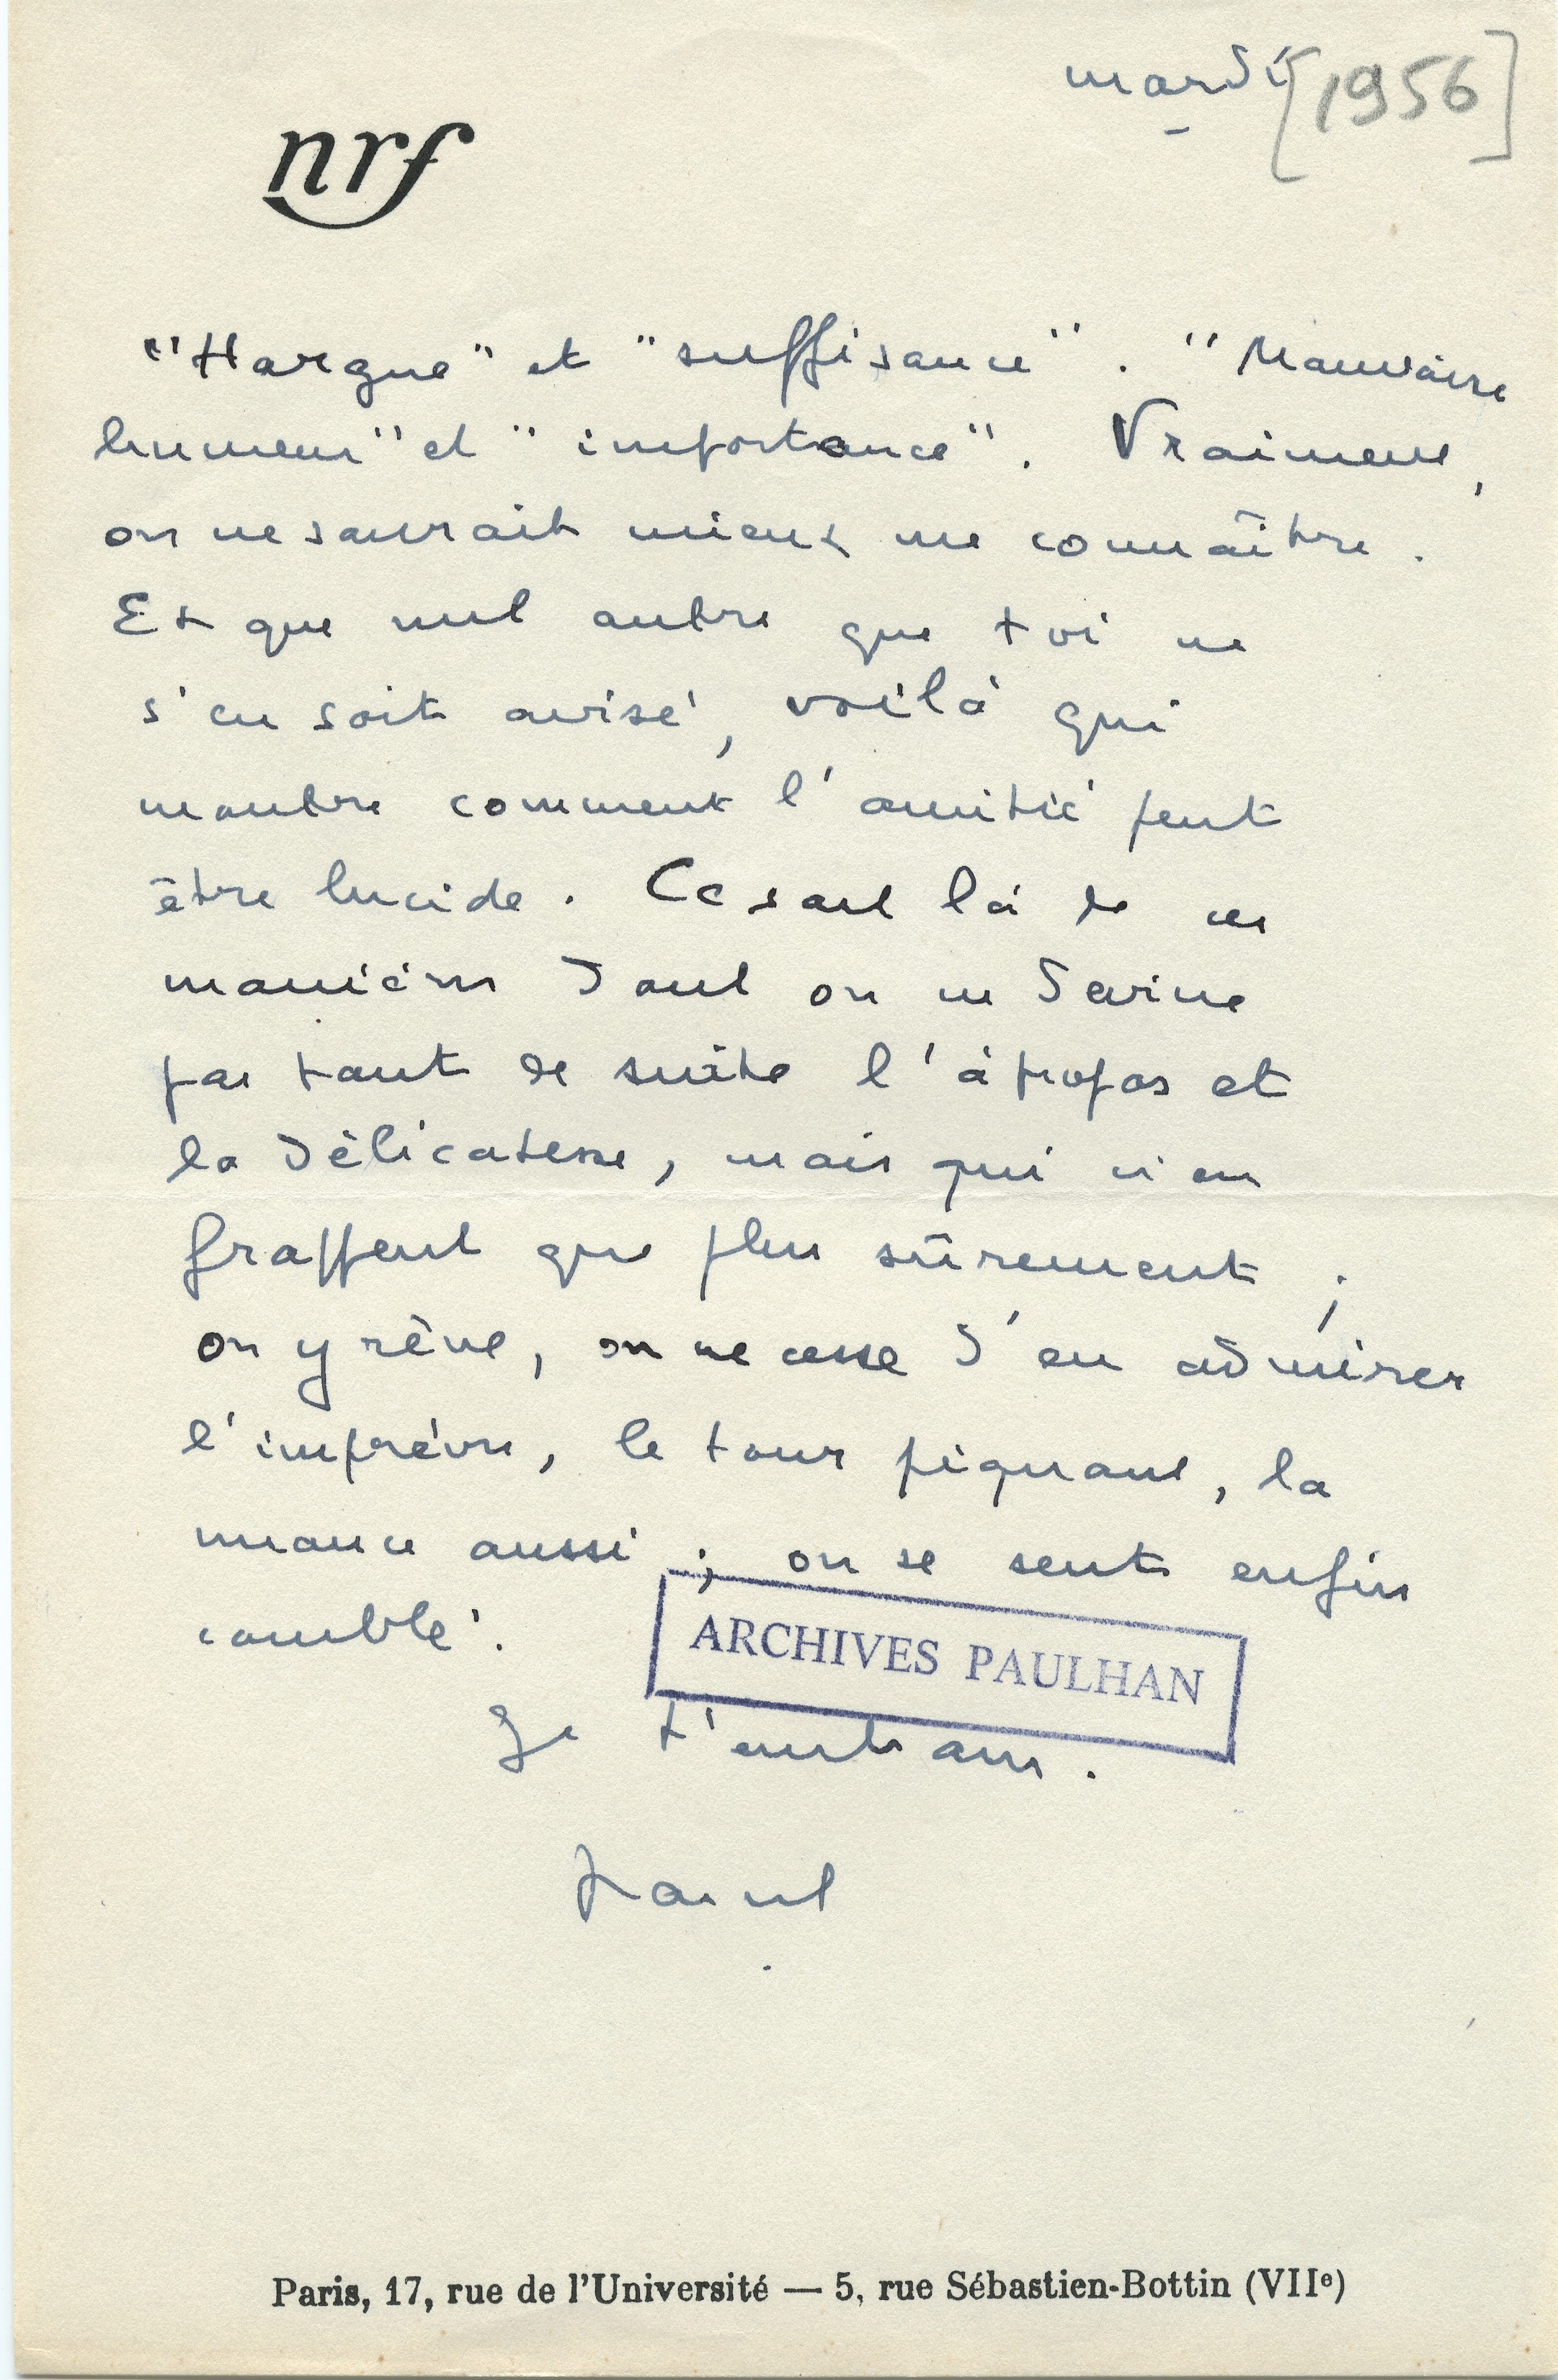 mardi [1956]
nrf
"Hargne" et "suffisance". "Mauvaise
humeur" et "importance". Vraiment,
on ne saurait mieux me connaître.
Et que nul autre que toi ne
s'en soit avisé, voilà qui
montre comment l'amitié peut
être lucide. Ce sont là de ces
manières dont on ne devine
pas tout de suite l'à propos et
la délicatesse, mais qui n'en
frappent que plus sûrement ;
on y rêve, on ne cesse d'en admirer
l'imprévu, le tour piquant, la
nuance aussi ; on se sent enfin
comblé.
ARCHIVES PAULHAN
Je t'embrasse.
Paris, 17, rue de l'Université — 5, rue Sébastien-Bottin (VIIe)